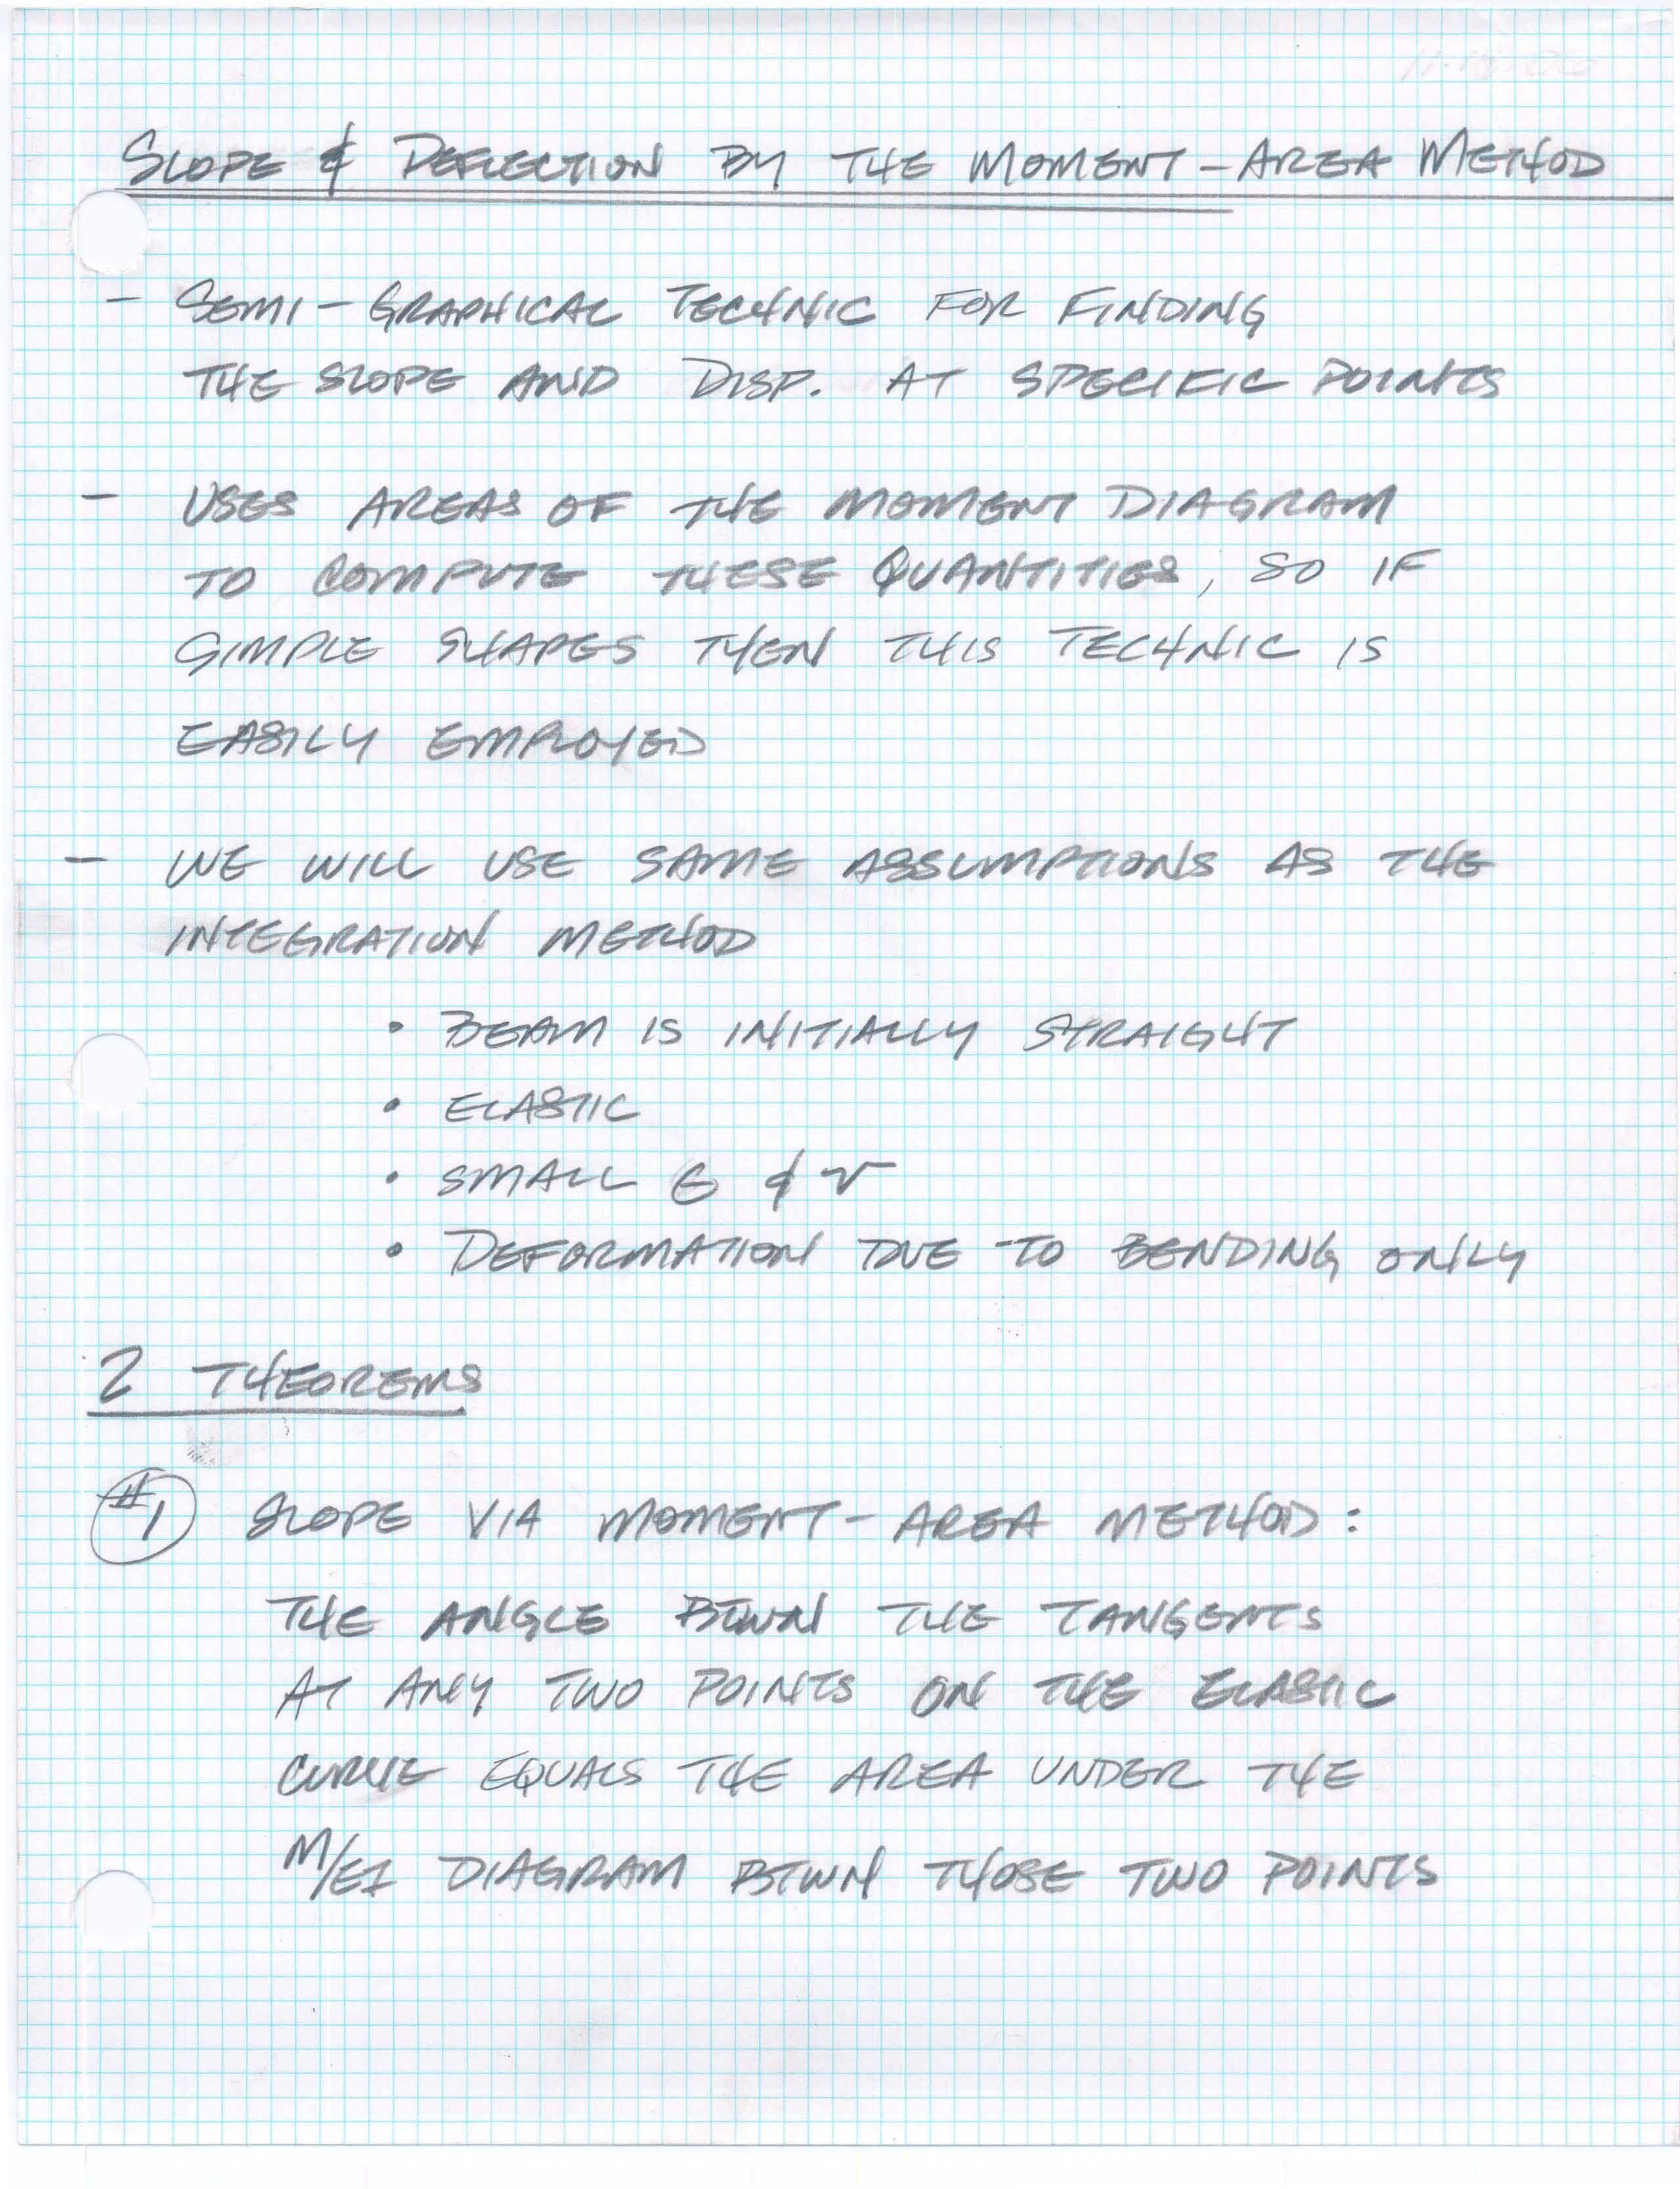 SLOPE & DEFLECTION BY THE MOMENT - AREA METHOD
- SEMI - GRAPHICAL TECHNIC FOR FINDING
THE SLOPE AND DISP. AT SPECIFIC POINTS
- USES AREAS OF THE MOMENT DIAGRAM
TO COMPUTE THESE QUANTITIES, SO IF
SIMPLE SHAPES THEN THIS TECHNIC IS
EASILY EMPLOYED
- WE WILL USE SAME ASSUMPTIONS AS THE
INTEGRATION METHOD
• BEAM IS INITIALLY STRAIGHT
• ELASTIC
• SMALL & v
• DEFORMATION DUE TO BENDING ONLY
2 THEOREMS
#1 SLOPE VIA MOMENT - AREA METHOD:
THE ANGLE BTWN THE TANGENTS
AT ANY TWO POINTS ON THE ELASTIC
CURVE EQUALS THE AREA UNDER THE
M/EI DIAGRAM BTWN THOSE TWO POINTS